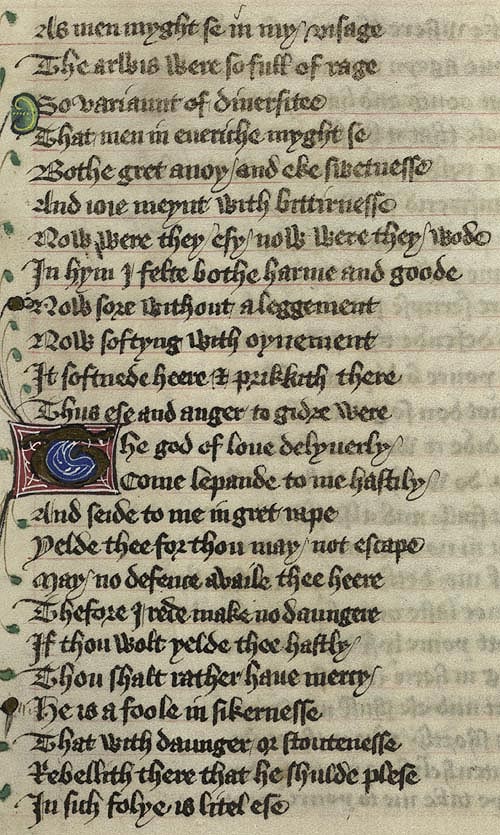 As men myght se in my visage
The arwis were so full of rage
So variaunt of diuersitee
That men in eueriche myght se
Bothe gret anoy and eke swetnesse
And ioie meynt with bittirnesse
Now were they esy now were they wode
In hym I felte bothe harme and goode
Now sore without aleggement
Now softyng with oynement
It softnede heere & prikkith there
Thus ese and anger to gidre were
The god of loue delyuerly
Come lepande to me hastily
And seide to me in gret rape
Yelde thee for thou may not escape
May no defence availe thee heere
Thefore I rede make no daungere
If thou wolt yelde thee hastly
Thou shalt rather haue mercy
He is a foole in sikernesse
That with daunger or stoutenesse
Rebellith there that he shulde plese
In sich folye is litel ese